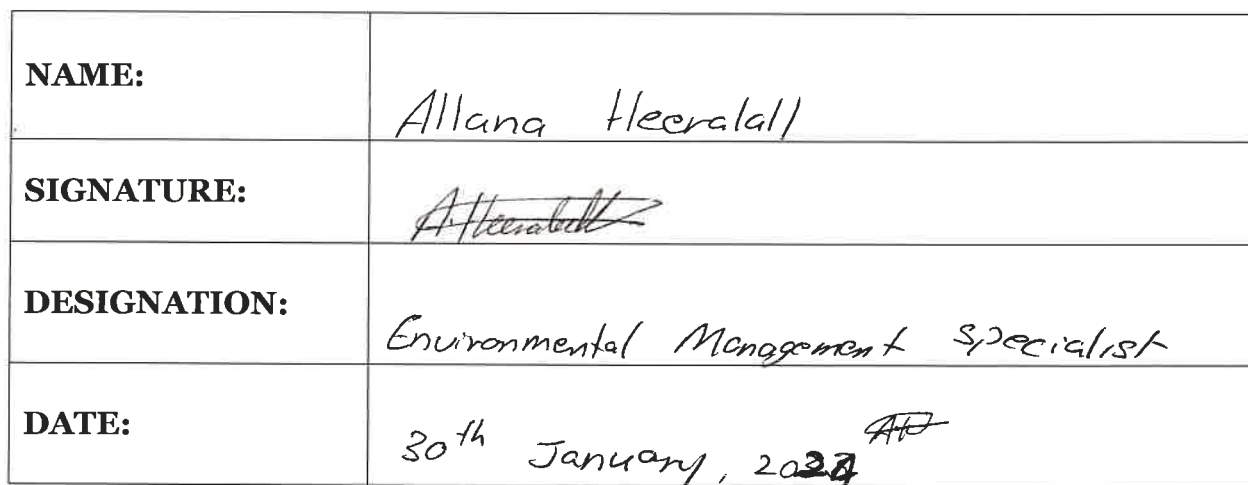 NAME: Allana Heeralall
SIGNATURE: A. Heeralall
DESIGNATION: Environmental Management Specialist
DATE: 30th January,